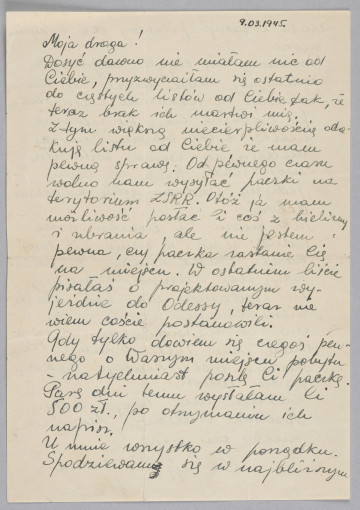 9.03.1945.
Moja droga!
Dosyć dawno nie miałam nic od
Ciebie, przyzwyczaiłam się ostatnio
do częstych listów od Ciebie, tak, że
teraz brak ich martwi mię.
Z tym większą niecierpliwością ocze-
kuję listu od Ciebie że mam
pewną sprawę. Od pewnego czasu
wolno nam wysyłać paczki na
terytorium ZSRR. Otóż ja mam
możliwość posłać Ci coś z bielizny
i ubrania, ale nie jestem
pewna, czy paczka zastanie Cię
na miejscu. W ostatnim liście
pisałaś o projektowanym wy-
jeździe do Odessy, teraz nie
wiem coście postanowili.
Gdy tylko dowiem się czegoś pew-
nego o Waszym miejscu pobytu
- natychmiast poślę Ci paczkę.
Parę dni temu wysłałam Ci
500 zł., po otrzymaniu ich
napisz.
U mnie wszystko w porządku.
Spodziewamy się w najbliższym